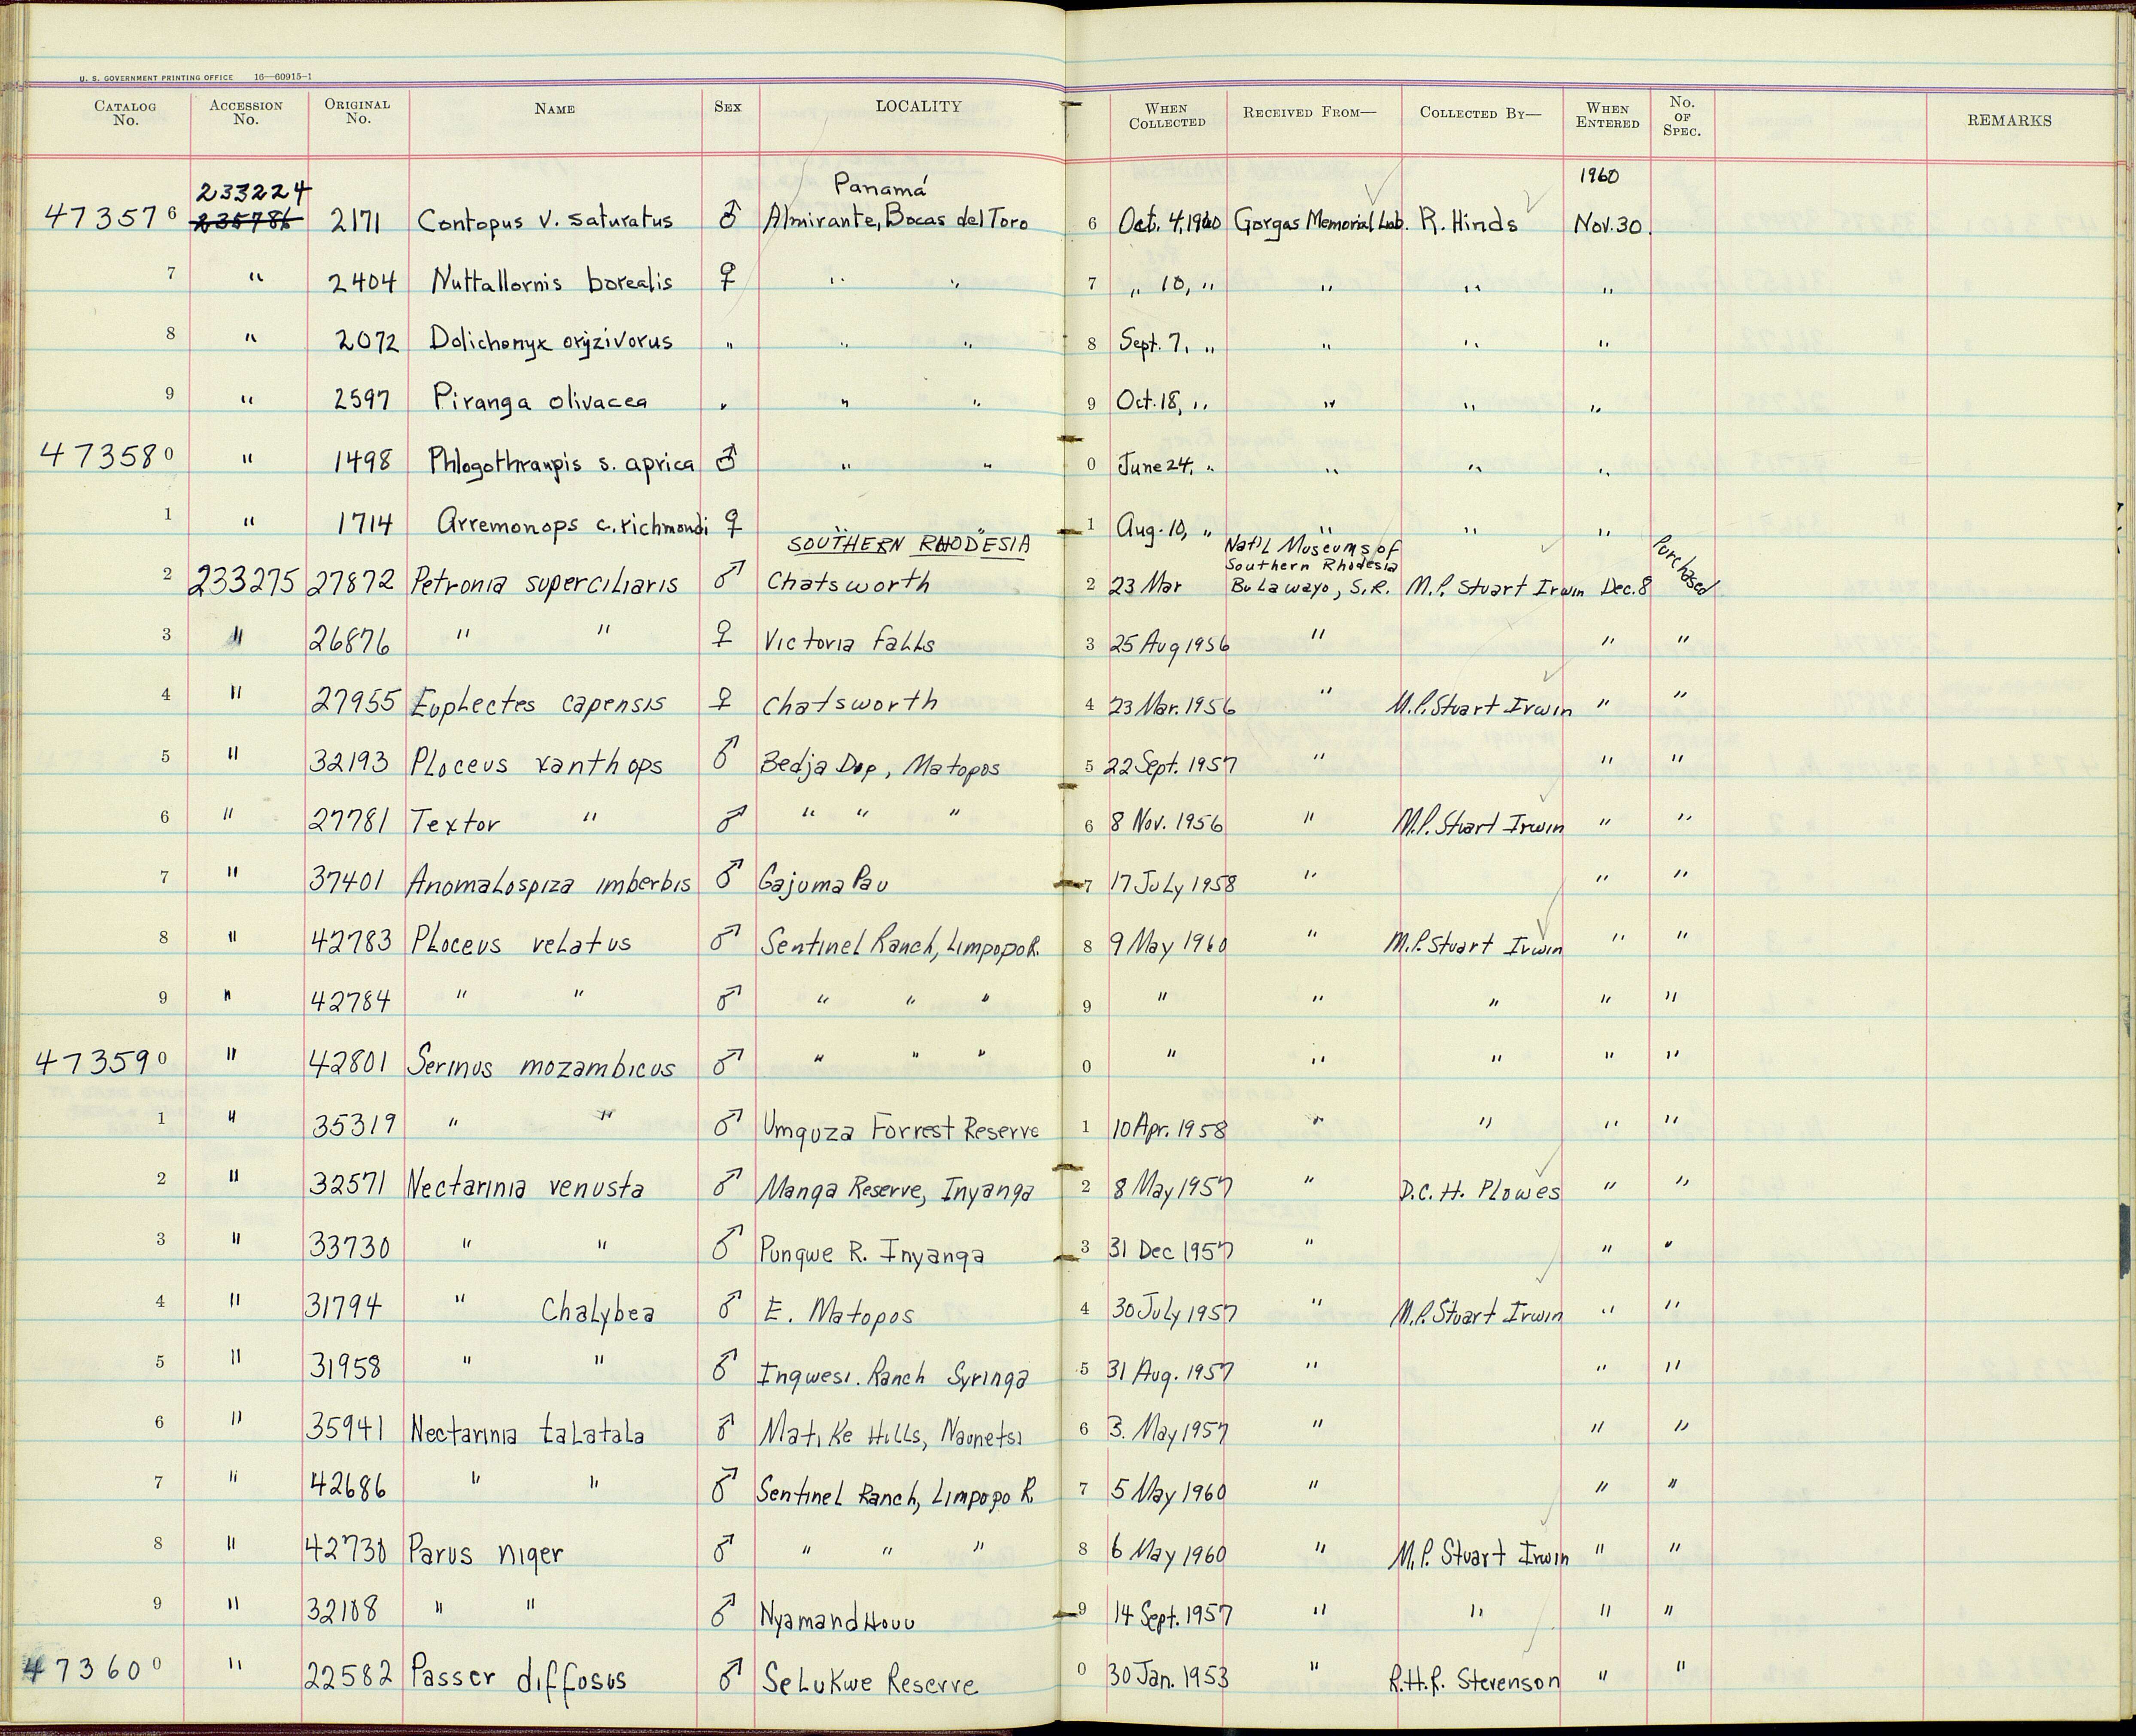 U. S. GOVERNMENT PRINTING OFFICE 16—60915-1
CATALOG No. ACCESSION No. ORIGINAL No. NAME SEX LOCALITY WHEN COLLECTED RECEIVED FROM— COLLECTED BY— WHEN ENTERED No. OF SPEC. REMARKS
233224 Panamá 1960
473576 235786 2171 Contopus v. saturatus ♂ Almirante, Bocas del Toro 6 Oct. 4, 1960 Gorgas Memorial Lab. R. Hinds Nov. 30
7 " 2404 Nuttallornis borealis ♀ " " 7 " 10, " " " "
8 " 2072 Dolichonyx oryzivorus " " " 8 Sept. 7, " " " "
9 " 2597 Piranga olivacea " " " 9 Oct. 18, " " " "
473580 " 1498 Phlogothraupis s. aprica ♂ " " 0 June 24, " " " "
1 " 1714 Arremonops c. richmondi ♀ " " 1 Aug. 10, " " " "
SOUTHERN RHODESIA Nat'l Museums of
Southern Rhodesia
2 233275 27872 Petronia superciliaris ♂ Chatsworth 2 23 Mar Bulawayo, S.R. M.P. Stuart Irwin Dec. 8 Purchased
3 " 26876 " " ♀ Victoria Falls 3 25 Aug 1956 " " "
4 " 27955 Euplectes capensis ♀ Chatsworth 4 23 Mar. 1956 " M.P. Stuart Irwin " "
5 " 32193 Ploceus xanthops ♂ Bedja Dip, Matopos 5 22 Sept. 1957 " " "
6 " 27781 Textor " ♂ " " " 6 8 Nov. 1956 " M.P. Stuart Irwin " "
7 " 37401 Anomalospiza imberbis ♂ Gajuma Pau 7 17 July 1958 " " "
8 " 42783 Ploceus velatus ♂ Sentinel Ranch, Limpopo R. 8 9 May 1960 " M.P. Stuart Irwin " "
9 " 42784 " " ♂ " " " 9 " " " " "
473590 " 42801 Serinus mozambicus ♂ " " " 0 " " " " "
1 " 35319 " " ♂ Umguza Forrest Reserve 1 10 Apr. 1958 " " " "
2 " 32571 Nectarinia venusta ♂ Manga Reserve, Inyanga 2 8 May 1957 " D.C.H. Plowes " "
3 " 33730 " " ♂ Pungwe R. Inyanga 3 31 Dec 1957 " " "
4 " 31794 " Chalybea ♂ E. Matopos 4 30 July 1957 " M.P. Stuart Irwin " "
5 " 31958 " " ♂ Ingwesi. Ranch Syringa 5 31 Aug. 1957 " " "
6 " 35941 Nectarinia talatala ♂ Matike Hills, Naunetsi 6 3. May 1957 " " "
7 " 42686 " " ♂ Sentinel Ranch, Limpopo R. 7 5 May 1960 " " "
8 " 42730 Parus niger ♂ " " " 8 6 May 1960 " M.P. Stuart Irwin " "
9 " 32108 " " ♂ 9 14 Sept. 1957 " " " "
473600 " 22582 Passer diffosus ♂ Selukwe Reserve 0 30 Jan. 1953 " R.H.R. Stevenson " "